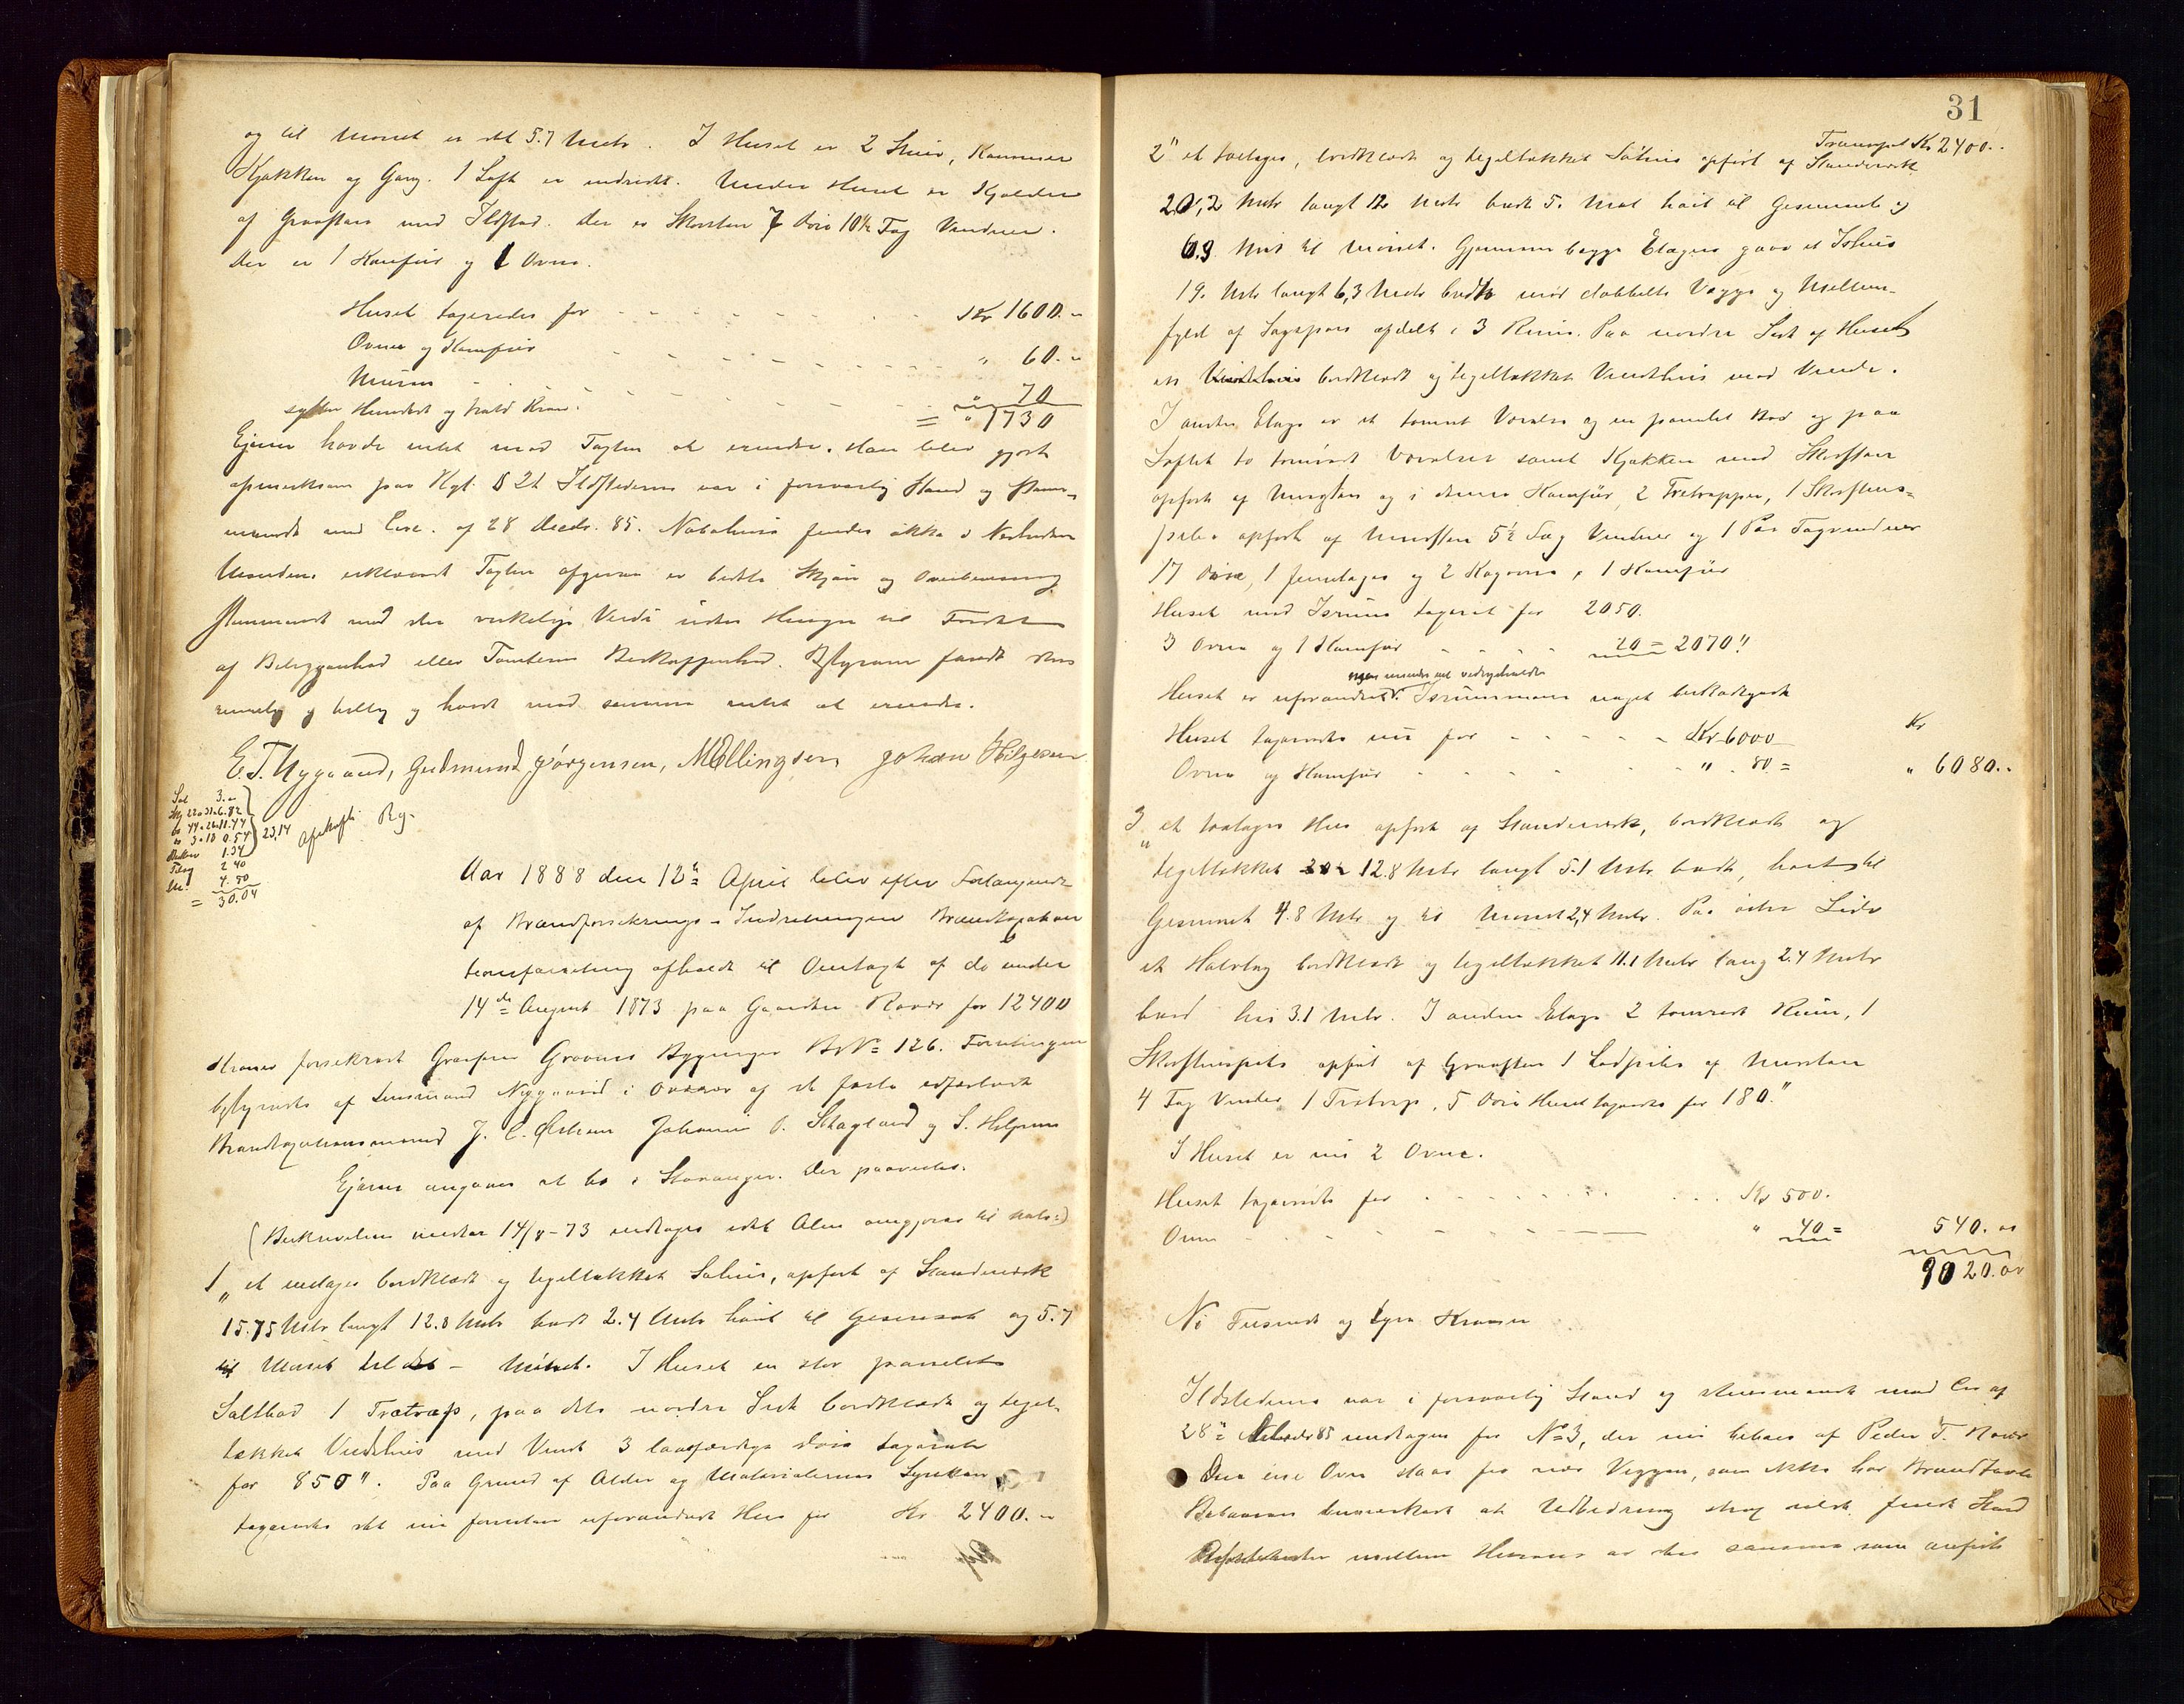 og til Mønet er det 5.7 Metr. I Huset er 2 Stuer, Kammers
Kjøkken og Gang. 1 Loft er indredt. Under Huset er Kjelder
af Graasten med Ildsted. Der er Skorsten 7 Døre 10½ Fag Vinduer.
Der er 1 Komfur og 1 Ovn.
Huset taxeredes for - - - Kr 1600.-
Ovne og Komfur - - - " 60.-
Muren - - - " 70
sytten Hundrede og tredive Kroner. = " 1730
Ejeren havde intet mod Taxten at erindre. Han blev gjort
opmerksom paa Kgl. § 21 Ildstederne var i forsvarlig Stand og stem-
mende med Circ. af 28 Decbr. 85. Nabohus findes ikke i Nærheden
Mændene erklærede Taxten afgiven efter bedste Skjøn og Overbevisning
stemmende med den virkelige Værdi uden Hensyn til Fordel
af Beliggenhed eller Tomtens Beskaffenhed. Bestyreren fandt den
rimelig og billig og havde mod samme intet at erindre.
E. T. Nygaard, Gudmund Jørgensen, M Ellingsen Johan Helgesen
Sal 3.-
Skj 22 a 31 = 6.82
do 44 a 26 = 11.44
do 3 a 18 0.54
23,14
1.34
2 40
4.80
= 30.04
Afskrift Rg.
Aar 1888 den 12te April blev efter Forlangende
af Brandforsikrings-Indretningen Branttaxations
forretning afholdt til Omtaxt af de under
14de August 1873 paa Gaarden Røvær for 12400
Kroner forsikrede Bygninger Br No 126. Forretningen
bestyredes af Lensmand Nygaard i Avaldsnes og de faste edfæstede
Brandtaxationsmænd J. C. Johannes O. Stagland og S. Helgesen
Ejeren angaves at bo i Stavanger. Der paavistes.
(Beskrivelsen under 14/8-73 indtages idet Alen omgjøres til Metr:)
1" et enetages bordklædt og tegltækket Søhus, opført af Standerverk
15.75 Metr langt 12.8 Metr bredt 2.4 Metr høit til Gesimset og 5.7
til Mønet. I Huset en stor panelet
Saltbod 1 Trætrap, paa dets nordre Side bordklædt og tegl-
tækket Vindehus med Vinde 3 laasfærdige Døre taxerede
for 850". Paa Grund af Alder og Materialernes
taxeredes det nu forøvrigt uforandrede Hus for Kr 2400.-
31
Transport Kr 2400.-
2" et toetages, bordklædt og tegltækket Søhus opført af Standerverk
20,2 Metr langt 12 Metr bredt 5. Metr høit til Gesimset og
6.9 Metr til Mønet. Gjennem begge Etager gaar et Ishus
19. Metr langt 6,3 Metr bredt med dobbelte Vægge og Mellem-
fyld af Sagspaan afdelt i 3 Rum. Paa nordre Side af Huset
et bordklædt og tegltækket Vindehus med Vinde.
I anden Etage er et tømret Værelse og en panelet Bod og paa
Loftet to tømrede Værelser samt Kjøkken med Skorsten
opført af Mursten og i denne Komfur, 2 Trætrapper, 1 Skorstens-
pibe opført af Mursten 5½ Fag Vinduer og 1 Par Tagvinduer
17 Døre, 1 femetages og 2 Kogovne, 1 Komfur
Huset med Isrum taxeret for 2050.
3 Ovne og 1 Komfur - - - 20 = 2070"
Huset er uforandret. Isrummene noget beskadiget
Huset taxeredes nu for - - - Kr 6000 Kr
Ovne og Komfur - - - " 80 = " 6080.-
3" et toetages Hus opført af Standerverk, bordklædt og
tegltækket 12.8 Metr langt 5.1 Metr bredt, høit til
Gesimset 4.8 Metr og til Mønet 2,4 Metr. Paa østre Side
et Halvtag bordklædt og tegltækket 11.1 Metr lang 2.4 Metr
bred høi 3.1 Metr. I anden Etage 2 tømrede Rum, 1
Skorstenspibe opført af Graasten 1 Ledpibe af Mursten
4 Fag Vinduer 1 Trætrap, 5 Døre Huset taxeredes for 180."
I Huset er nu 2 Ovne.
Huset taxeredes for - - - Kr 500.
Ovne - - - " 40 = 540. oo
9020. oo
Ni Tusinde og tyve Kroner
Ildstederne var i forsvarlig Stand og stemmende med Circ af
28de Decbr 85 undtagen for No 3, der nu beboes af Peder T. Røvær
Den ene Ovn staar for nær Væggen, som ikke har Brandtavle
Beboeren bemerkede at Udbedring strax vilde finde Sted
Afstanden mellem Husene er den samme som anført